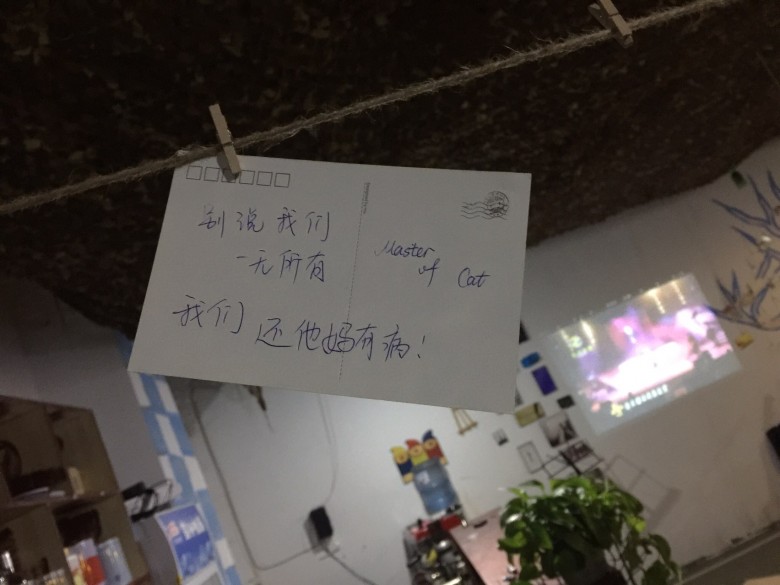 别说我们
一无所有
我们还他妈有病!
Master
of Cat